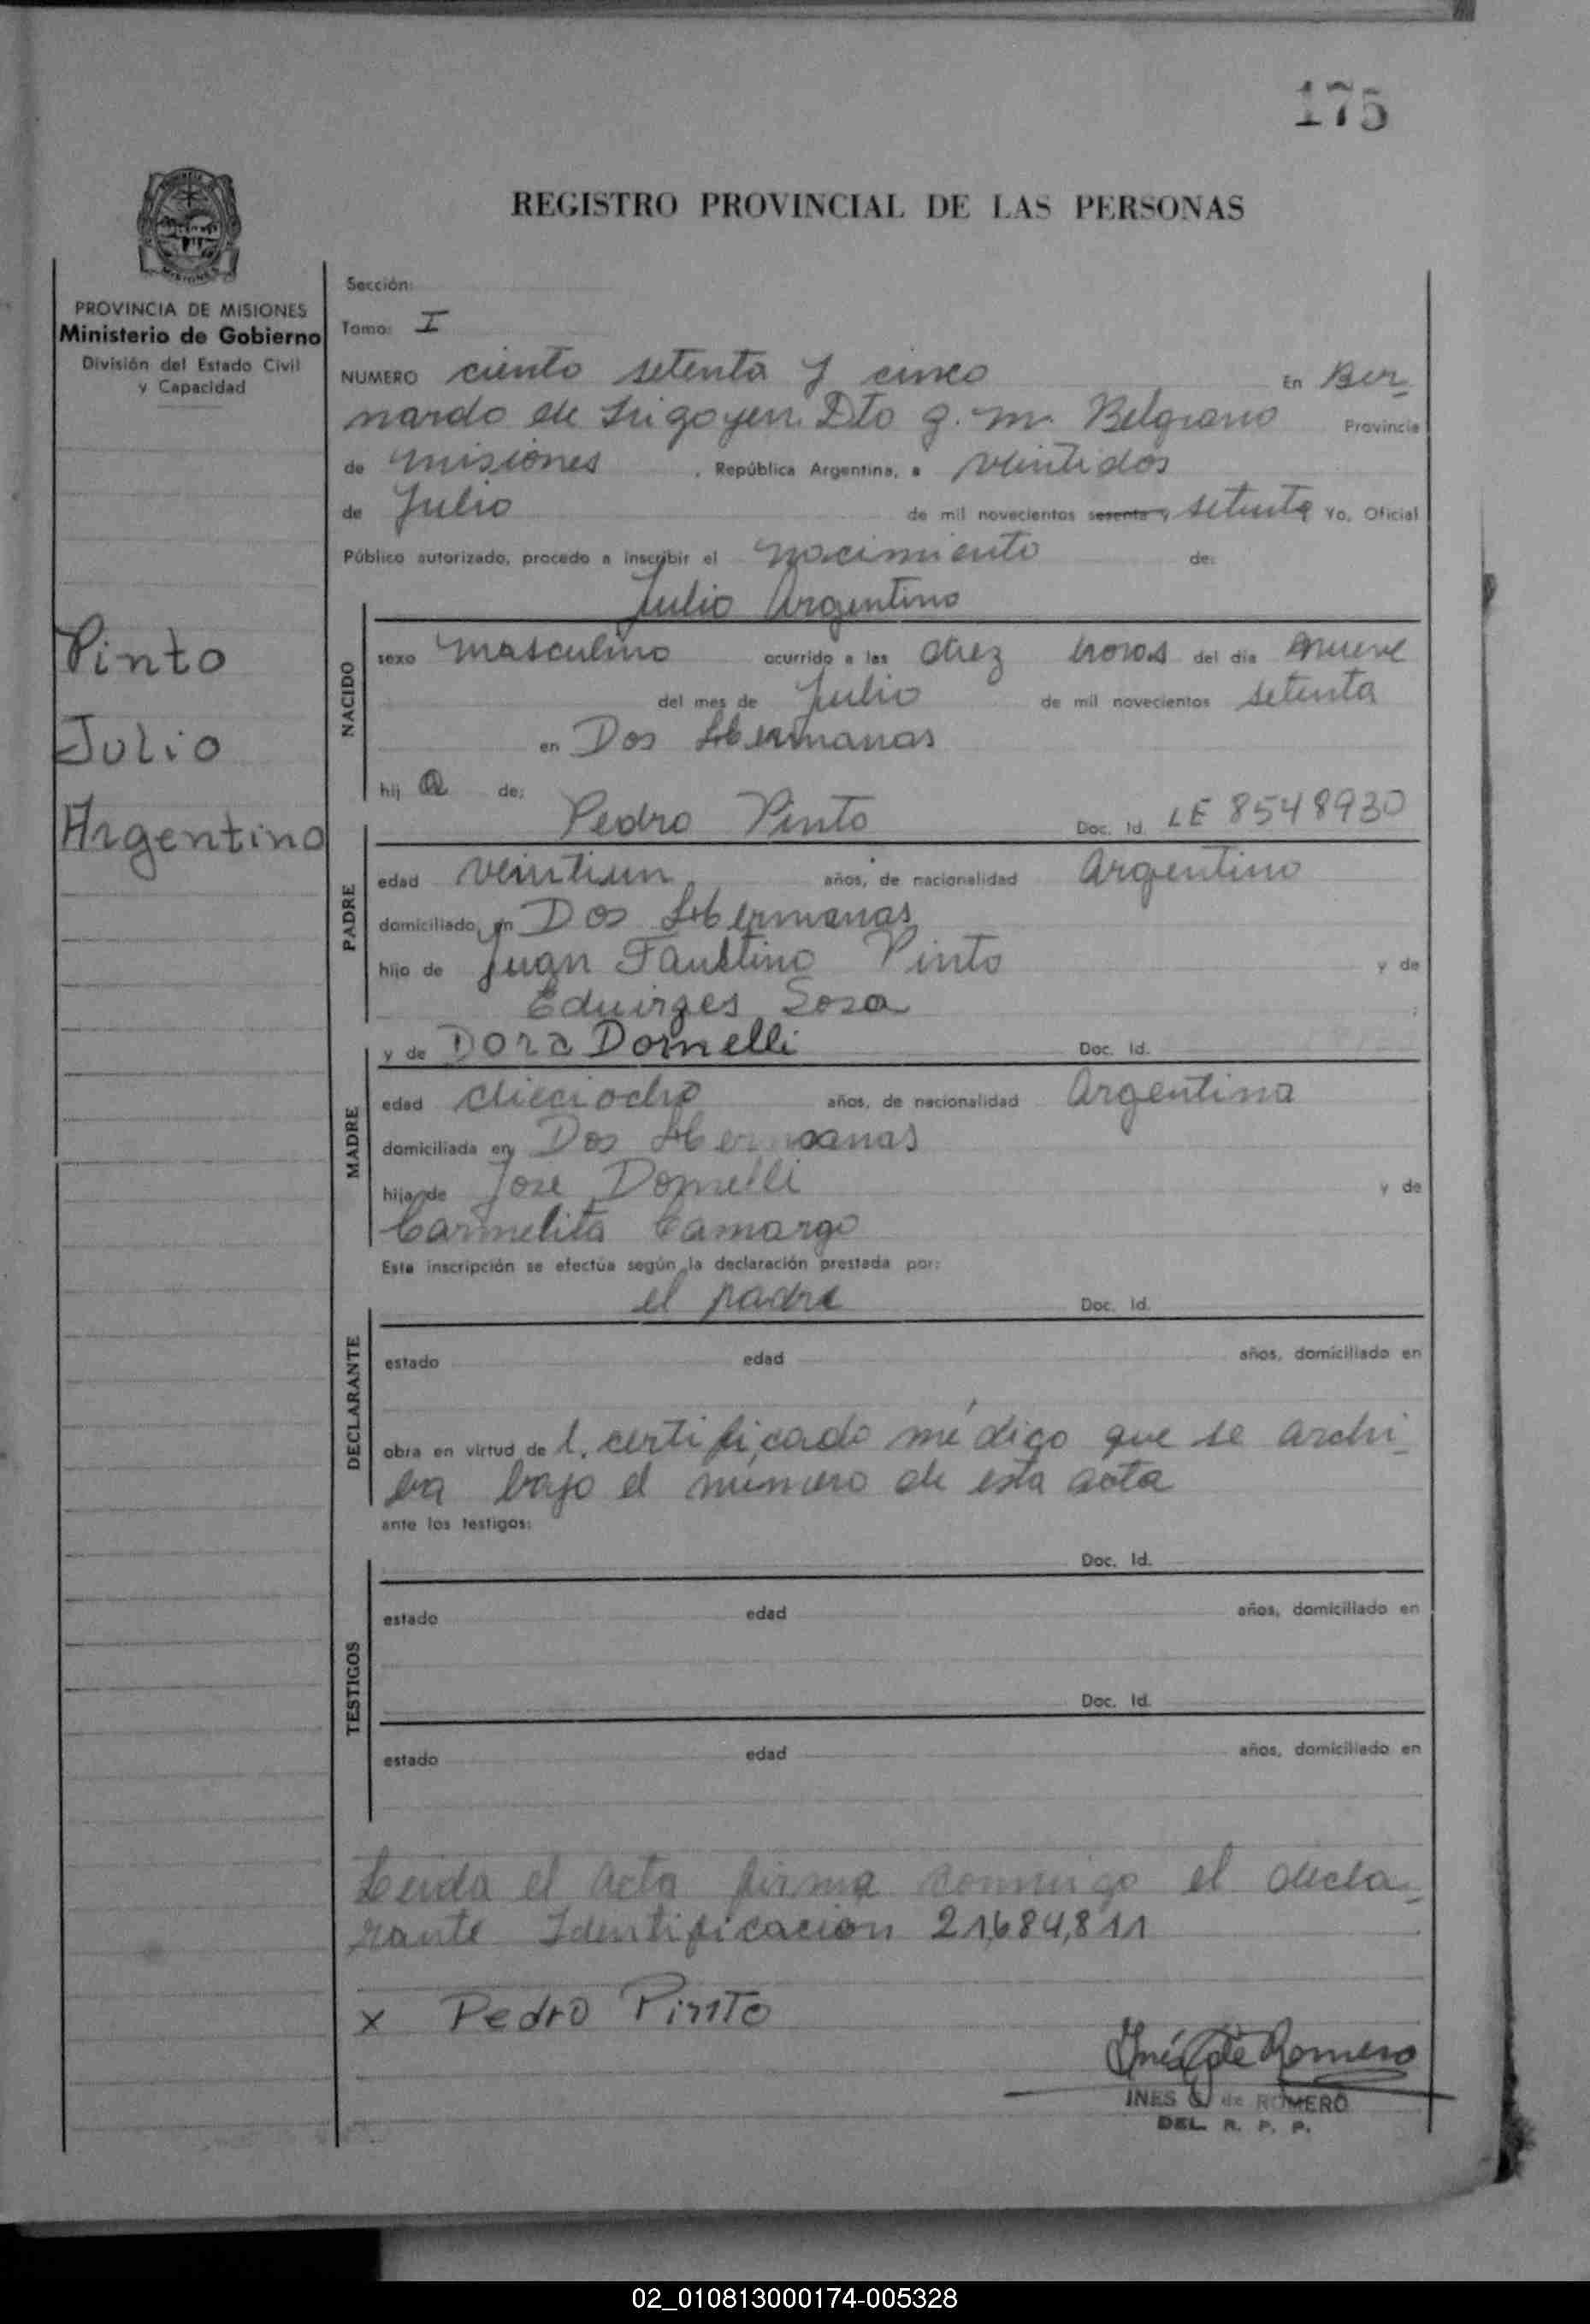 175
REGISTRO PROVINCIAL DE LAS PERSONAS
MISIONES
PROVINCIA DE MISIONES
Ministerio de Gobierno
División del Estado Civil
y Capacidad
Pinto
Julio
Argentino
Sección:
Tomo: I
NUMERO ciento setenta y cinco En Ber-
nardo de Irigoyen Dto g. m. Belgrano Provincia
de misiones, República Argentina, a veintidos
de Julio de mil novecientos sesenta y setenta Yo, Oficial
Público autorizado, procedo a inscribir el nacimiento de:
Julio Argentino
NACIDO
sexo masculino ocurrido a las diez horas del día nueve
del mes de Julio de mil novecientos setenta
en Dos Hermanas
hij o de:
Pedro Pinto Doc. Id. LE 8548930
PADRE
edad veintiun años, de nacionalidad Argentino
domiciliado en Dos Hermanas
hijo de Juan Faustino Pinto y de
Eduirges Sosa ;
y de Dora Dornelli Doc. Id.
MADRE
edad dieciocho años, de nacionalidad Argentina
domiciliada en Dos Hermanas
hija de Jose Dornelli y de
Carmelita Camargo
Esta inscripción se efectúa según la declaración prestada por:
el padre Doc. Id.
DECLARANTE
estado edad años, domiciliado en
obra en virtud de l. certificado médico que se archi-
va bajo el número de esta acta
ante los testigos:
Doc. Id.
TESTIGOS
estado edad años, domiciliado en
Doc. Id.
estado edad años, domiciliado en
Leida el acta firma conmigo el decla-
rante Identificacion 21,684,811
x Pedro Pinto
Inés de Romero
INES de ROMERO
DEL. R. P. P.
02_010813000174-005328